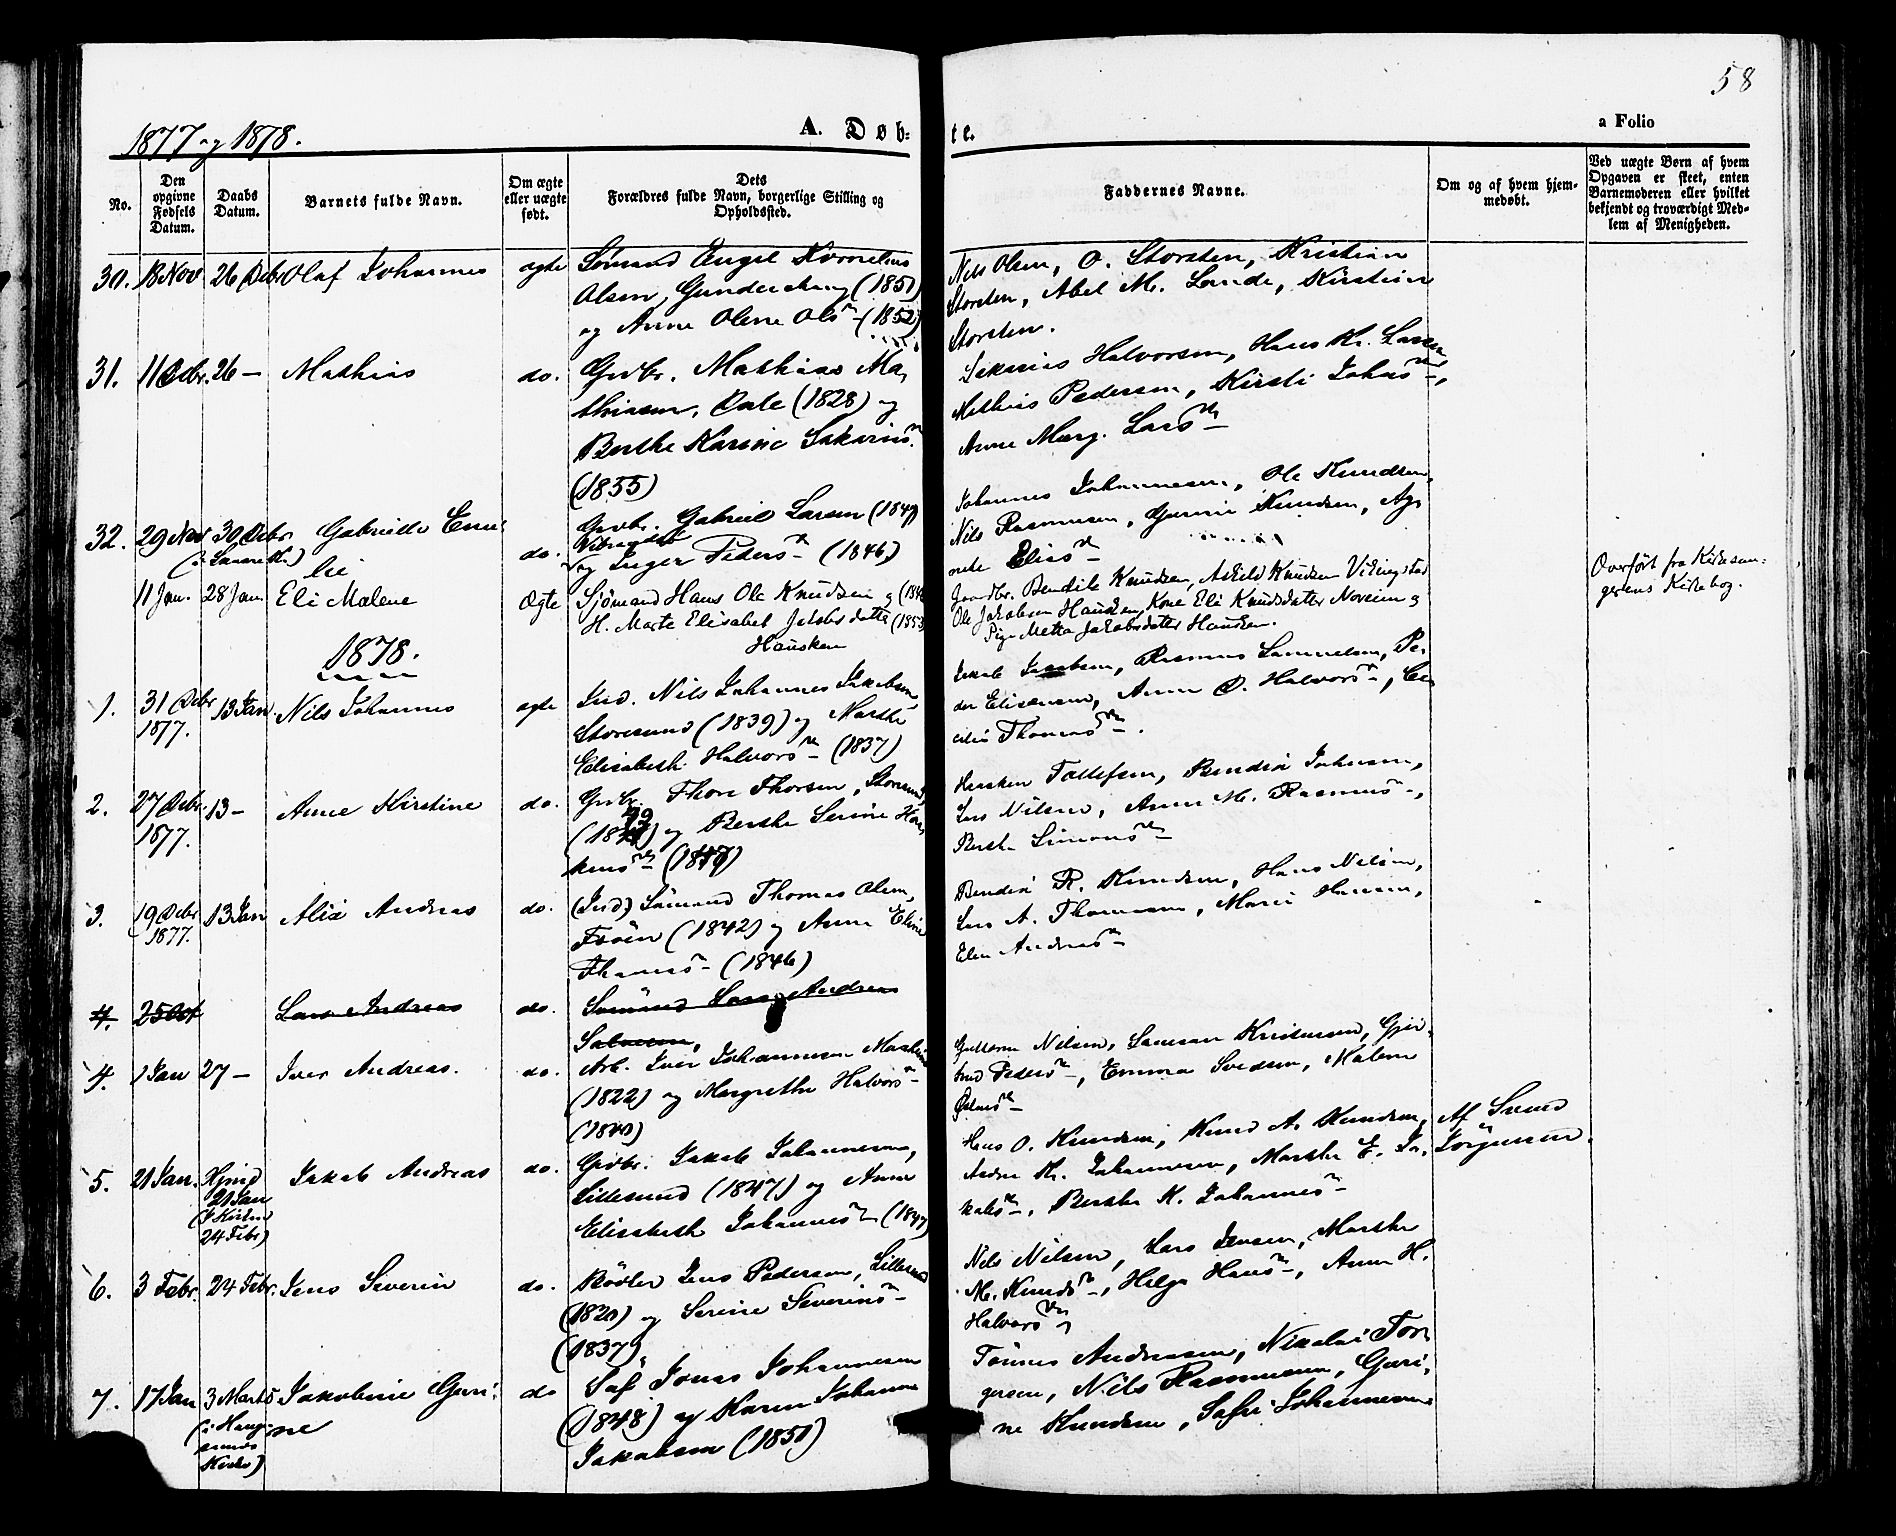 58
1877 og 1878.
A. Døb-
te.
a Folio
No.
Den opgivne Fødsels Datum.
Daabs Datum.
Barnets fulde Navn.
Om ægte eller uægte født.
Dets Forældres fulde Navn, borgerlige Stilling og Opholdssted.
Faddernes Navne.
Om og af hvem hjemmedøbt.
Ved uægte Børn af hvem Opgaven er skeet, enten Barnemoderen eller hvilket bekjendt og troværdigt Medlem af Menigheden.
30. 18 Nov 26 Debr Olaf Johannes ægte Sømand Engel Kornelius
Olsen, (1851)
og Anne Oline Ols (1852)
Nils Olsen, O. Storsten, Kristian
Storsten, Abel M. Lande, Kirstine
Storsten.
31. 11 Debr. 26 — Mathias do. Grdbr. Mathias Ma-
thiasen, (1828) og
Berthe Karine Sakarias
(1855)
Sekarias Halvorsen, Hans Kr. Larsen
Mathias Pedersen, Kirsti Johns
Anne Marg. Lars
32. 29 Nov 30 Debr. Gabrielle Emi-
lie do. Grdbr. Gabriel Larsen (1849)
og Inger Peders (1846)
Johannes Johannesen, Ole Knudsen,
Nils Rasmussen, Gurine Knudsen, Ag-
nete Elias
11 Jan. 28 Jan. Eli Malene Ægte Sjømand Hans Ole Knudsen og
H. Marte Elisabet Jakobsdatter (1853)
Hausken
Gaardbr. Bendik Knudsen, Askild Knudsen Vikingstad
Ole Jakobsen Hausken, Kone Eli Knudsdatter og
Pige Metta Jakobsdatter Hausken.
Overført fra Kirkesan-
gerens Kirkebog.
1878.
1. 31 Debr 1877. 13 Jan Nils Johannes ægte Ind. Nils Johannes Jakobsen
Storesund (1839) og Marthe
Elisabeth Halvors (1837)
Jakob Jacobsen, Rasmus Samuelsen, Pe-
der Eliasesen, Anne D. Halvors, Ce-
cilie Thomas.
2. 27 Debr. 1877. 13 — Anne Kirstine do. Grdbr. Thore Thorsen, Storesund,
og Berthe Serine Haa-
kens (1847)
Haaken Tollefsen, Bendix Johnsen,
Lars Nilsen, Anne M. Rasmus,
Berthe Simons
3. 19 Debr 1877. 13 Jan Andreas do. (Ind) Sømand Thomas Olsen,
(1842) og Anne Eline
Thomas (1846)
Bendix R. Knudsen, Hans Nilsen,
Lars A. Thomsen, Marie Hansen,
Elen Andreas
4. 25 Oct Lars Andreas do. Sømand Lars Andreas
Salvesen,
4. 1 Jan 27 — Iver Andreas. do. Arb. Iver Johannesen
(1822) og Margrethe Halvors
(1840)
Guttorm Nilsen, Samson Kristensen, Gjer-
trud Peders, Emma Svedsen, Malene
5. 21 Jan. Hjmd 21 Jan (I Kirken 24 Febr) Jakob Andreas do. Grdbr. Jakob Johannesen,
Lillesund (1847) og Anne
Elisabeth Johannes (1847)
Hans O. Knudsen, Knud A. Knudsen,
Andr. Kr. Johannesen, Marthe E. Ja-
kobs, Berthe K. Johannes
Af Svend
Jørgensen.
6. 3 Febr. 24 Febr. Jens Severin do. Bødker Jens Pedersen, Lillesund
(1820) og Serine Severins
(1837).
Nils Nilsen, Lars Jensen, Marthe
M. Knuds, Helga Hans, Anne H.
Halvors
7. 17 Jan 3 Marts (i Hauge-
sunds
Kirke) Jakobine Guri-
ne do Søf Jonas Johannesen
(1848) og Karen Johanne
Jakobsen (1851)
Tønnes Andreasen, Nikolai Tor-
gersen, Nils Rasmussen, Guri-
ne Knudsen, Sofie Johannesen